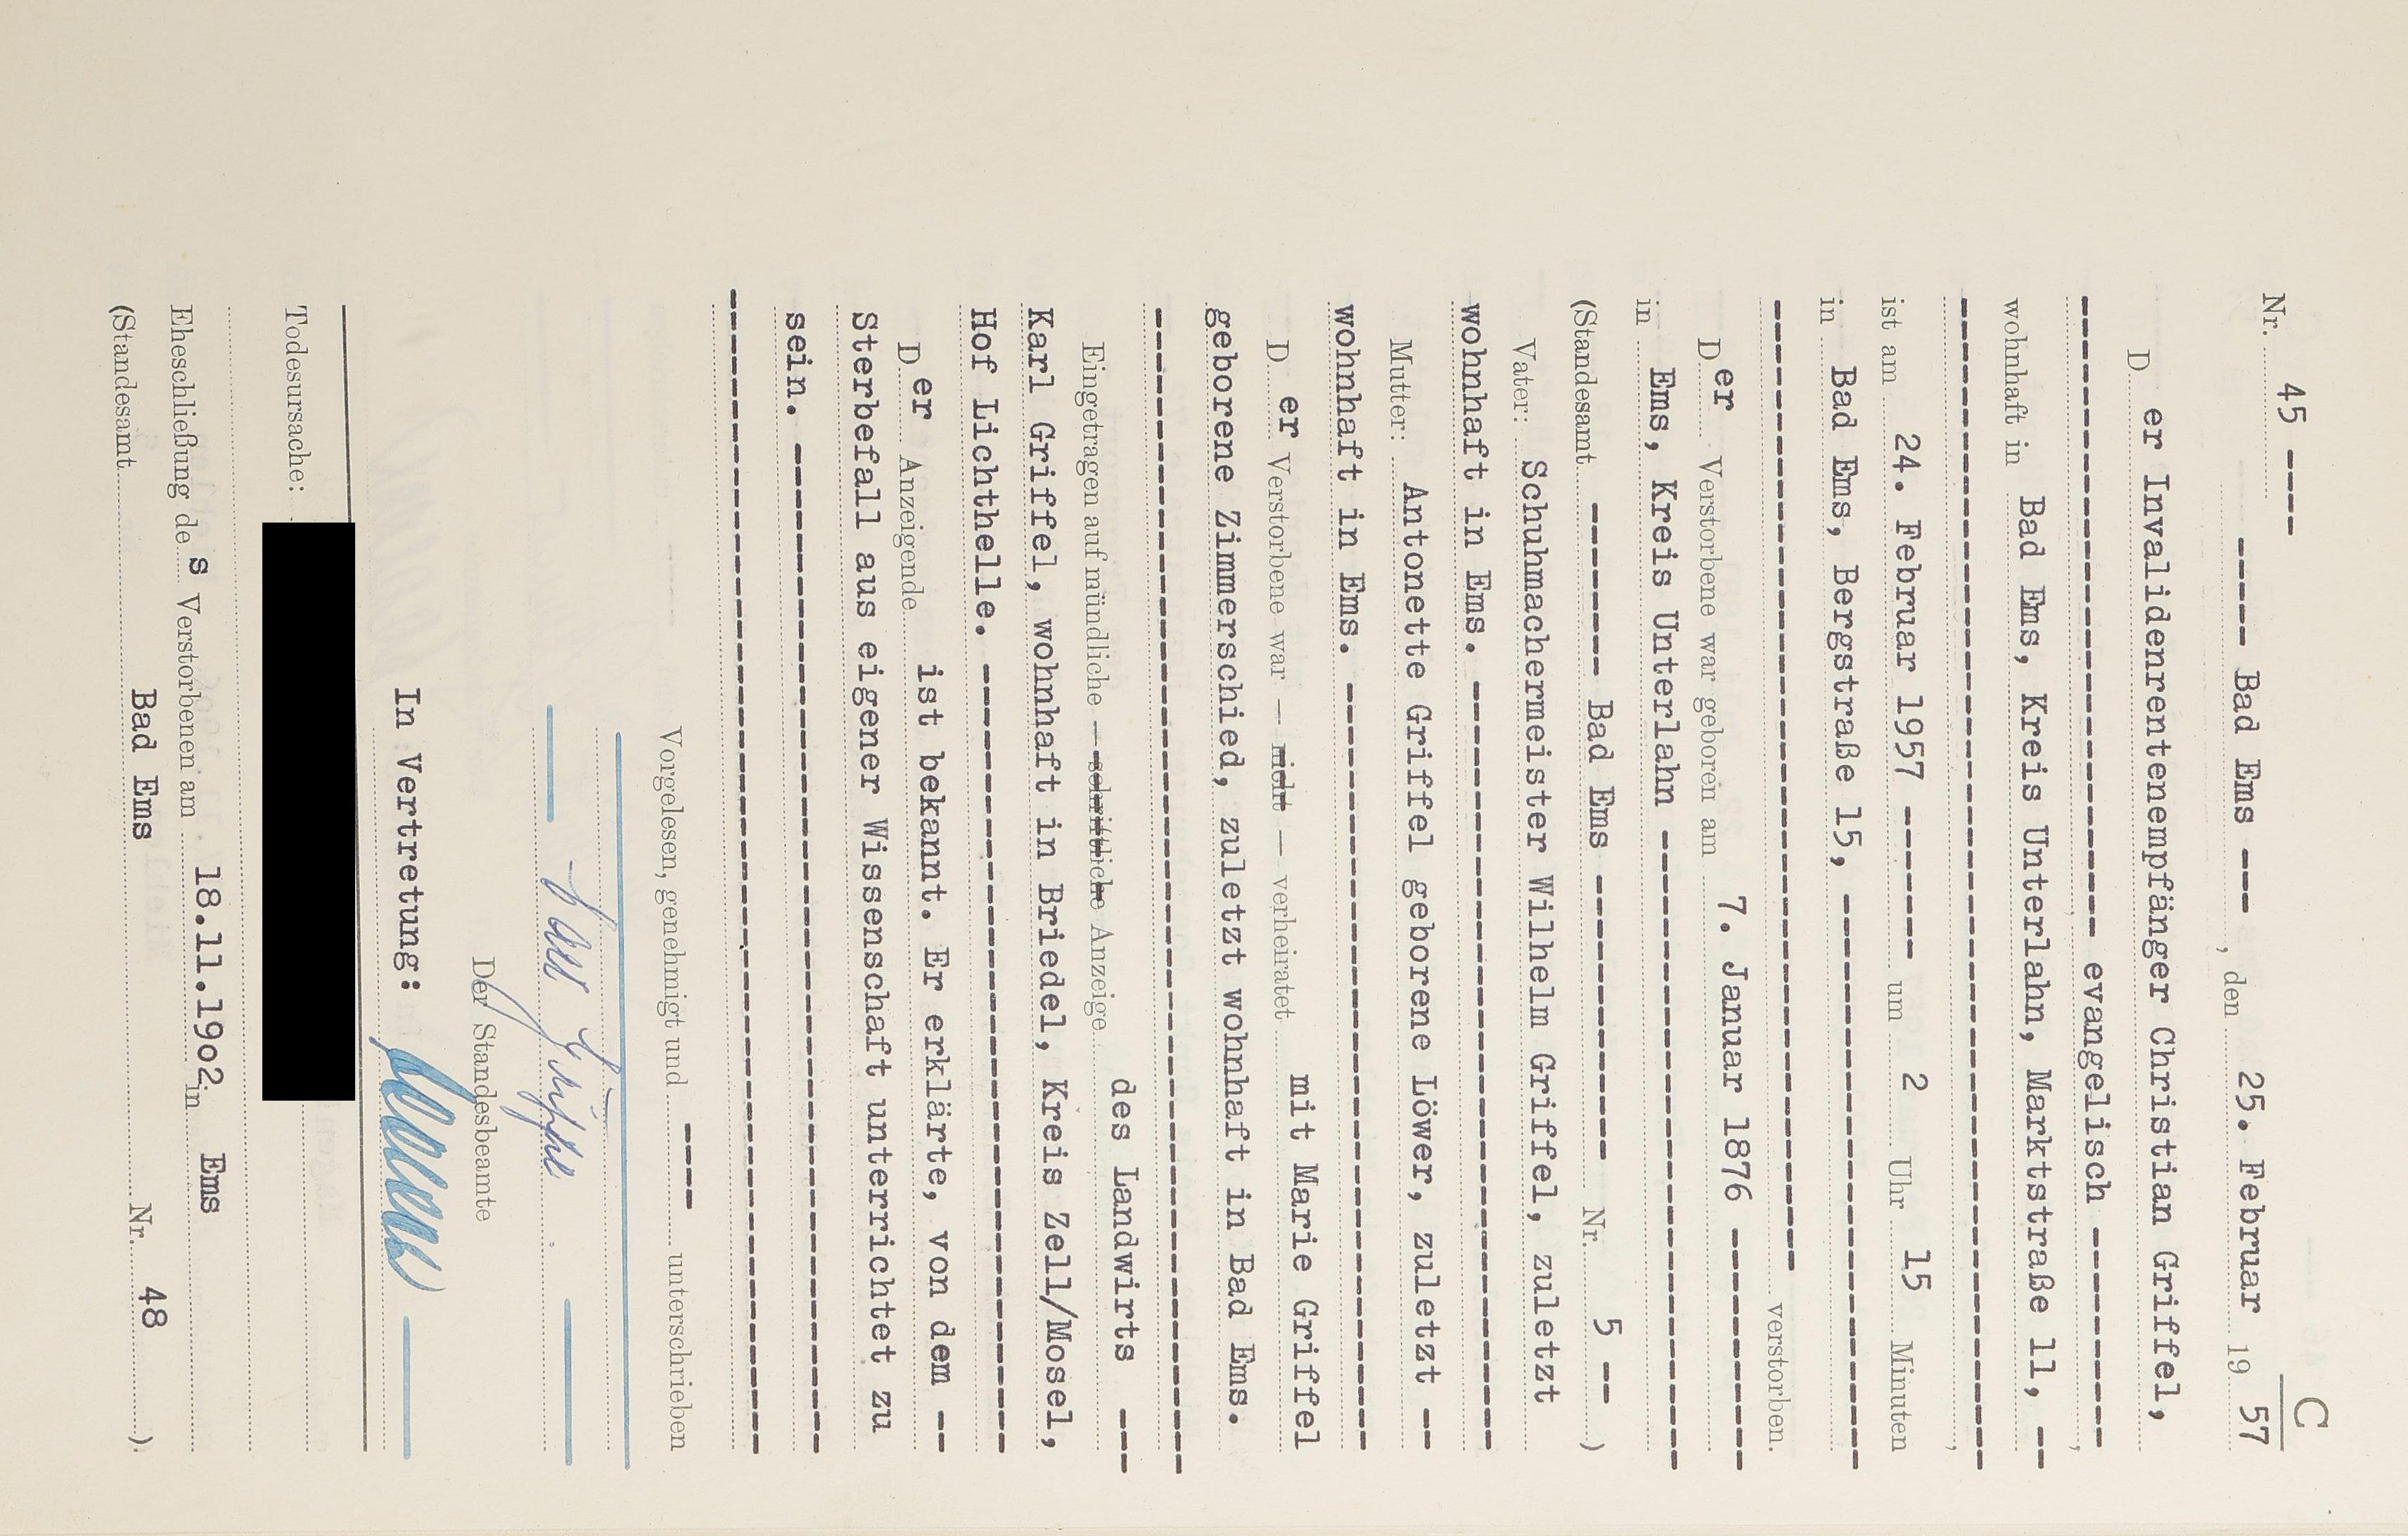 C
Nr. 45 ----
---- Bad Ems ---, den 25. Februar 1957
Der Invalidenrentenempfänger Christian Griffel,
---------------------------- evangelisch ---------,
wohnhaft in Bad Ems, Kreis Unterlahn, Marktstraße 11, --
--------------------------------------------------,
ist am 24. Februar 1957 ------ um 2 Uhr 15 Minuten
in Bad Ems, Bergstraße 15, -------------------------
------------------------------------------ verstorben.
Der Verstorbene war geboren am 7. Januar 1876 ----------
in Ems, Kreis Unterlahn ---------------------------
(Standesamt ------- Bad Ems ------------ Nr. 5 -- )
Vater: Schuhmachermeister Wilhelm Griffel, zuletzt
wohnhaft in Ems. --------------------------------
Mutter: Antonette Griffel geborene Löwer, zuletzt --
wohnhaft in Ems. --------------------------------
Der Verstorbene war — nicht — verheiratet mit Marie Griffel
geborene Zimmerschied, zuletzt wohnhaft in Bad Ems.
--------------------------------------------------
Eingetragen auf mündliche — schriftliche Anzeige des Landwirts ---
Karl Griffel, wohnhaft in Briedel, Kreis Zell/Mosel,
Hof Lichthelle. ---------------------------------
Der Anzeigende ist bekannt. Er erklärte, von dem --
Sterbefall aus eigener Wissenschaft unterrichtet zu
sein. -------------------------------------------
--------------------------------------------------
Vorgelesen, genehmigt und ---- unterschrieben
Karl Griffel
Der Standesbeamte
In Vertretung:
Todesursache:
Eheschließung des Verstorbenen am 18.11.19o2 in Ems
(Standesamt Bad Ems Nr. 48 ).